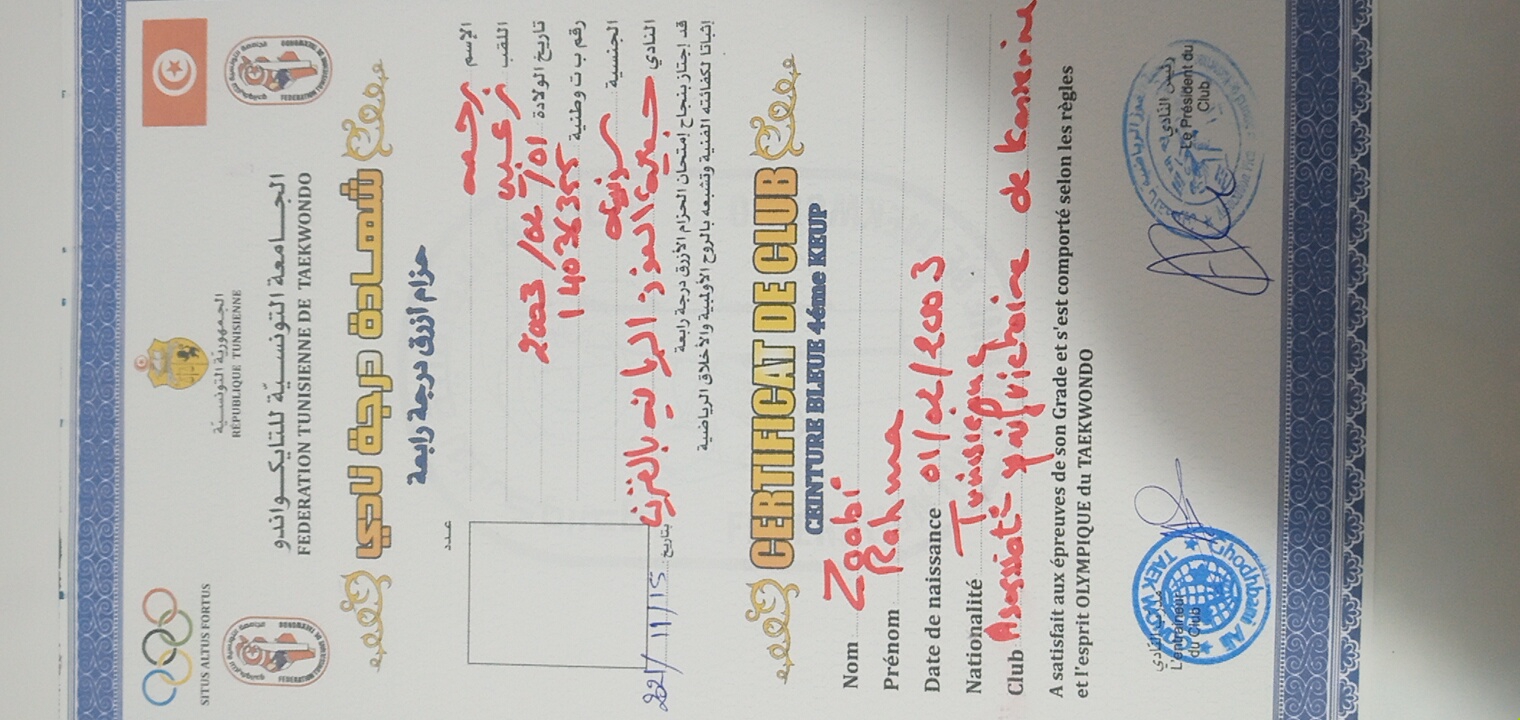 الجمهورية التونسية
RÉPUBLIQUE TUNISIENNE
SITUS ALTUS FORTUS
الجامعة التونسية للتايكواندو
FEDERATION TUNISIENNE DE TAEKWONDO
شهادة درجة نادي
حزام أزرق درجة رابعة
عدد
الإسم رحمه
اللقب زعبي
تاريخ الولادة 2003/02/01
رقم ب ت وطنية 14036355
الجنسية تونسية
النادي جمعية الفوز الرياضية بالقصرين
قد إجتاز بنجاح إمتحان الحزام الأزرق درجة رابعة
إثباتا لكفائته الفنية وتشبعه بالروح الأولمبية والأخلاق الرياضية
بتاريخ: 2021/11/15
CERTIFICAT DE CLUB
CEINTURE BLEUE 4éme KEUP
Nom Zaabi
Prénom Rahma
Date de naissance 01/02/2003
Nationalité Tunisienne
Club de Kasserine
A satisfait aux épreuves de son Grade et s'est comporté selon les règles
et l'esprit OLYMPIQUE du TAEKWONDO
مدرب النادي
L'entraineur
du Club
TAEKWONDO
Ghodhbani Ali
رئيس النادي
Le Président du
Club